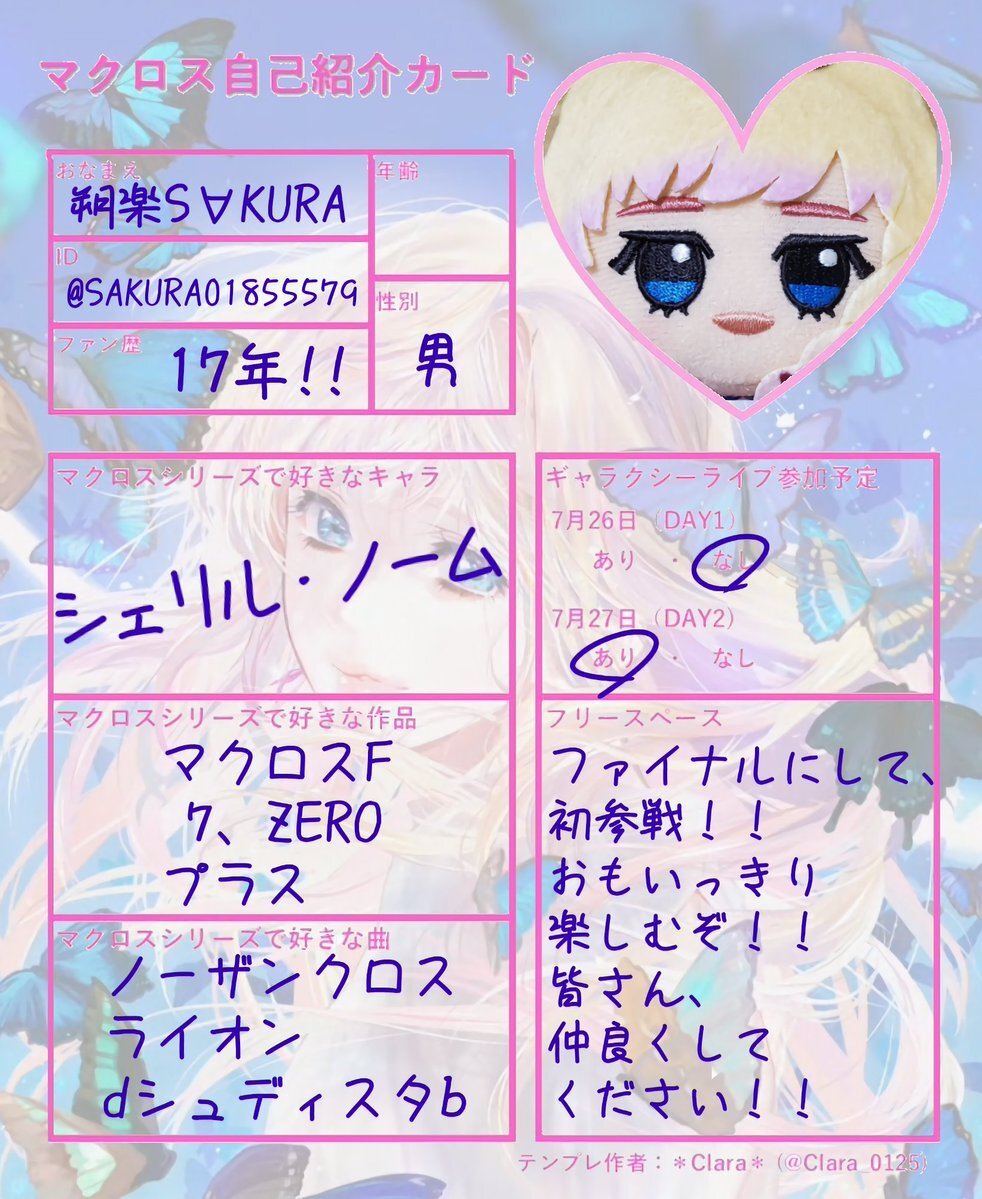 マクロス自己紹介カード
おなまえ
朔楽S∀KURA
年齢
ID
@SAKURA01855579
性別
男
ファン歴
17年!!
マクロスシリーズで好きなキャラ
シェリル・ノーム
ギャラクシーライブ参加予定
7月26日(DAY1)
あり ・ なし
7月27日(DAY2)
あり ・ なし
マクロスシリーズで好きな作品
マクロスF
7、ZERO
プラス
マクロスシリーズで好きな曲
ノーザンクロス
ライオン
dシュディスタb
フリースペース
ファイナルにして、
初参戦！！
おもいっきり
楽しむぞ！！
皆さん、
仲良くして
ください！！
テンプレ作者：＊Clara＊ (@Clara_0125)